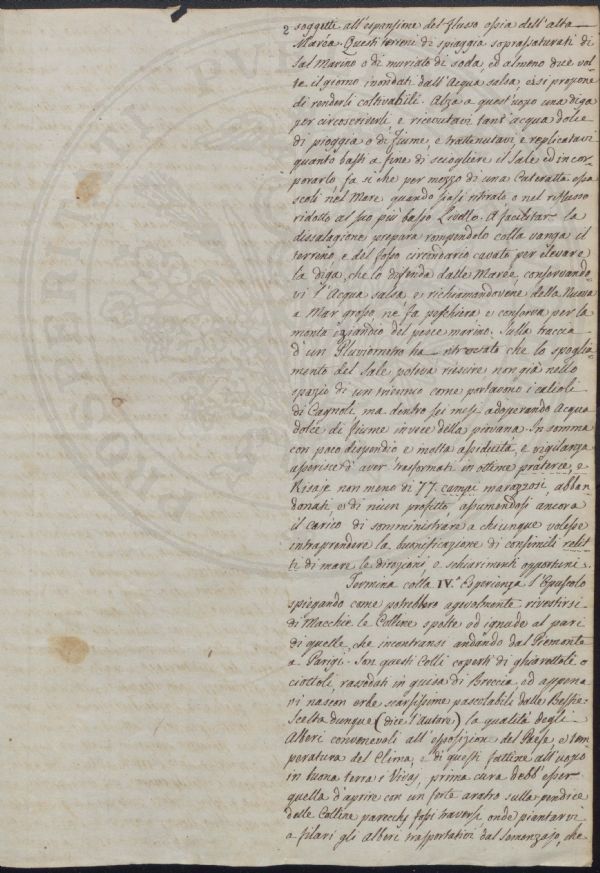 2 soggette all'espansione del flusso ossia dell'alta
Marèa. Questi terreni di spiaggia soprassaturati di
sal Marino o di muriato di soda, ed almeno due vol
te il giorno inondati dall'Acqua salsa, ei si propone
di renderli coltivabili. Alza a quest'uopo una diga
per circoscriverli e ricevutavi tant'acqua dolce
di pioggia o di fiume, e trattenutavi, e replicatavi
quanto basti a fine di sciogliere il Sale ed incor
porarlo fa sì che per mezzo di una Cateratta essa
scoli nel Mare quando siasi ritirato o nel riflusso
ridotto al suo più basso Livello. A facilitar la
dissalagione prepara rompendolo colla vanga il
terreno, e del fosso circondario cavato per elevare
la diga, che lo difenda dalle Marèe, conservando
vi l'Acqua salsa, e richiamandovene della Nuova
a Mar grosso, ne fa peschiera e conserva per la
monta del pesce marino. Sulla traccia
d'un Pluviometro ha ritrovato che lo spoglia
mento del Sale poteva riescire non già nello
spazio di un triennio come portavono i calcoli
di Cagnoli, ma dentro sei mesi adoperando Acqua
dolce di fiume invece della piovana. In somma
con poco dispendio e molta assiduità, e vigilanza
asserisce d'aver trasformati in ottime praterie, e
Risaje non meno di 77. campi marazzosi, abban
donati e di niun profitto, assumendosi ancora
il carico di somministrare a chiunque volesse
intraprendere la bonificazione di consimili relit
ti di mare le direzioni e schiarimenti opportuni.
Termina colla IV.a Esperienza l'Opuscolo
spiegando come potrebbero agevolmente rivestirsi
di Macchie le Colline spolte ed ignude al pari
di quelle, che incontransi andando dal Piemonte
a Parigi. Son questi Colli coperti di ghiarottoli o
ciottoli, rassodati in guisa di Breccia ed appena
vi nascon erbe scarsissime pascolabili dalle Bestie.
Scelta dunque (dice l'autore) la qualità degli
Alberi convenevoli all'esposizion del Paese e tem
peratura del Clima, e di questi fattine all'uopo
in buona terra i Vivaj, prima cura debb'esser
quella d'aprire con un forte aratro sulla pendice
delle Colline parecchj fossi traversi, onde piantarvi
a filari gli Alberi trasportativi dal Semenzajo, che